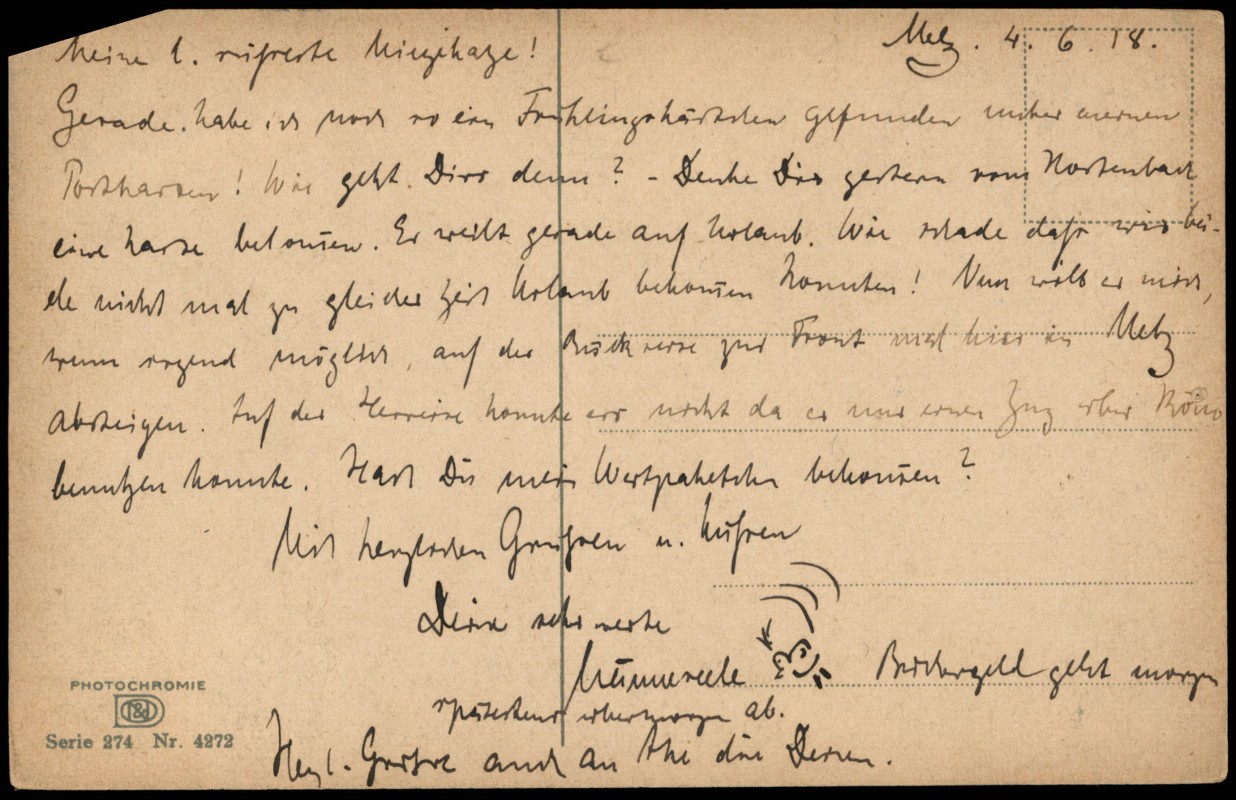 Metz. 4. 6. 18.
Meine l. süsseste Miezikatze!
Gerade habe ich noch so ein Frühlingskärtchen gefunden unter meinen
Postkarten! Wie geht Dirs denn? - Denke Dir gestern vom Hortenbach
eine Karte bekom̄en. Er weilt gerade auf Urlaub. Wie schade dass wir bei-
de nicht mal zu gleicher Zeit Urlaub bekom̄en konnten! Nun will er mich,
wenn irgend möglich, auf der Rückreise zur Front mal hier in Metz
absteigen. Auf der Herreise konnte ers nicht da er nur einen Zug über
benutzen konnte. Hast Du mein Wertpaketchen bekom̄en?
Mit herzlichen Grüssen u. Küssen
Deine
geht morgen
spätestens übermorgen ab.
Herzl. Grüsse auch an die Deinen.
PHOTOCHROMIE
Serie 274 Nr. 4272